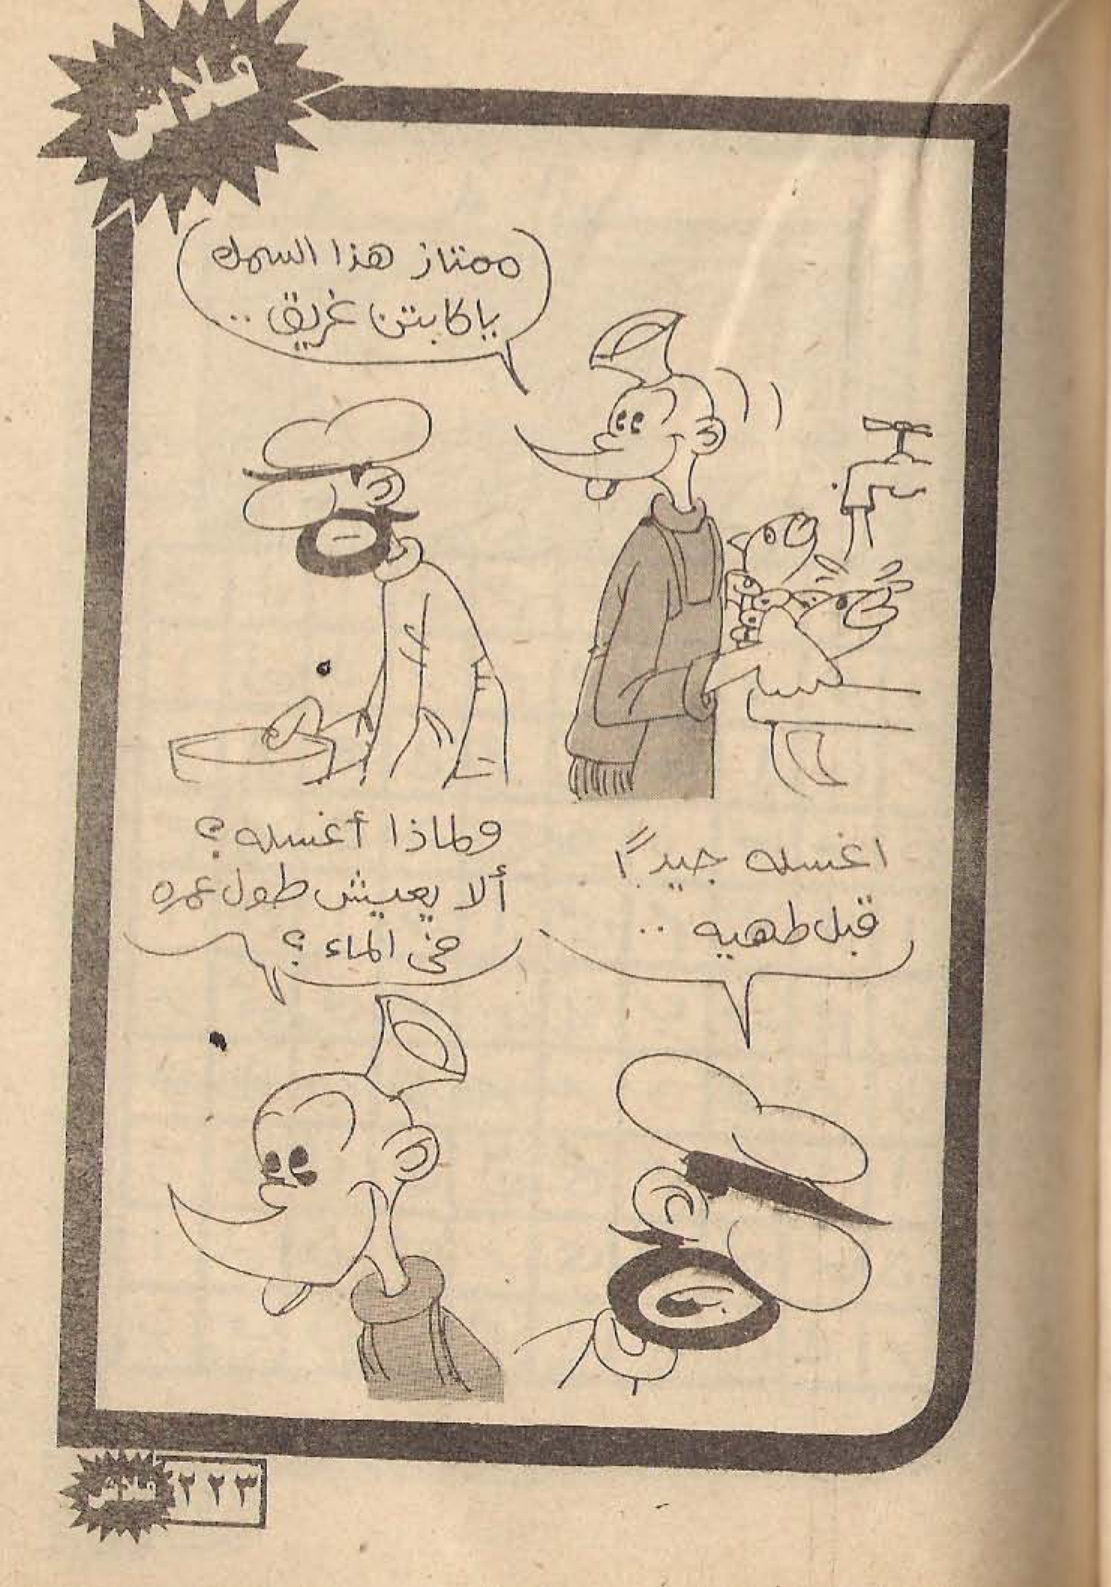 فلاش
ممتاز هذا السمك
يا كابتن غريق ..
اغسله جيداً
قبل طهيه ..
ولماذا أغسله ؟
ألا يعيش طول عمره
فى الماء ؟
٢٢٣
فلاش